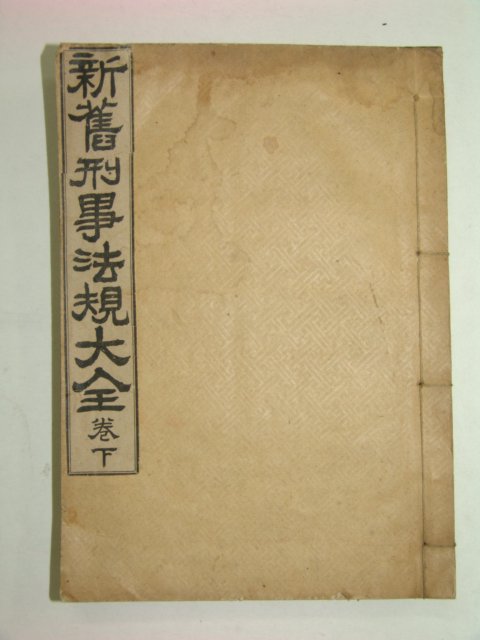 新舊刑事法規大全卷下